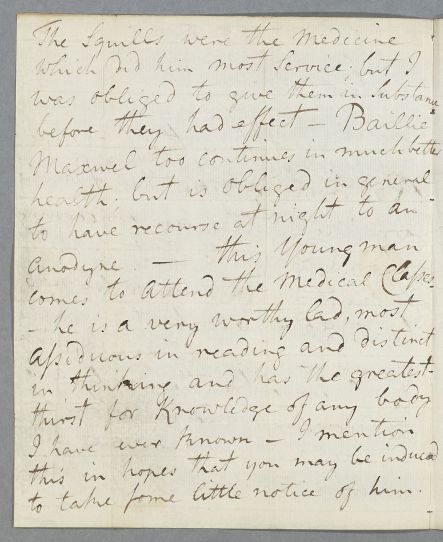 The Squills were the medicine
which did him most service; but I
was obliged to give them in Substance
before they had effect – Baillie
Maxwel too continues in much better
health; but is obliged in general
to have recourse at night to an
anodyne. — this Young man
comes to attend the medical Classes
– he is a very worthy lad, most
assiduous in reading and distinct
in thinking and has the greatest
thirst for Knowledge of any body
I have ever known – I mention
this in hopes that you may be induced
to take some little notice of him.